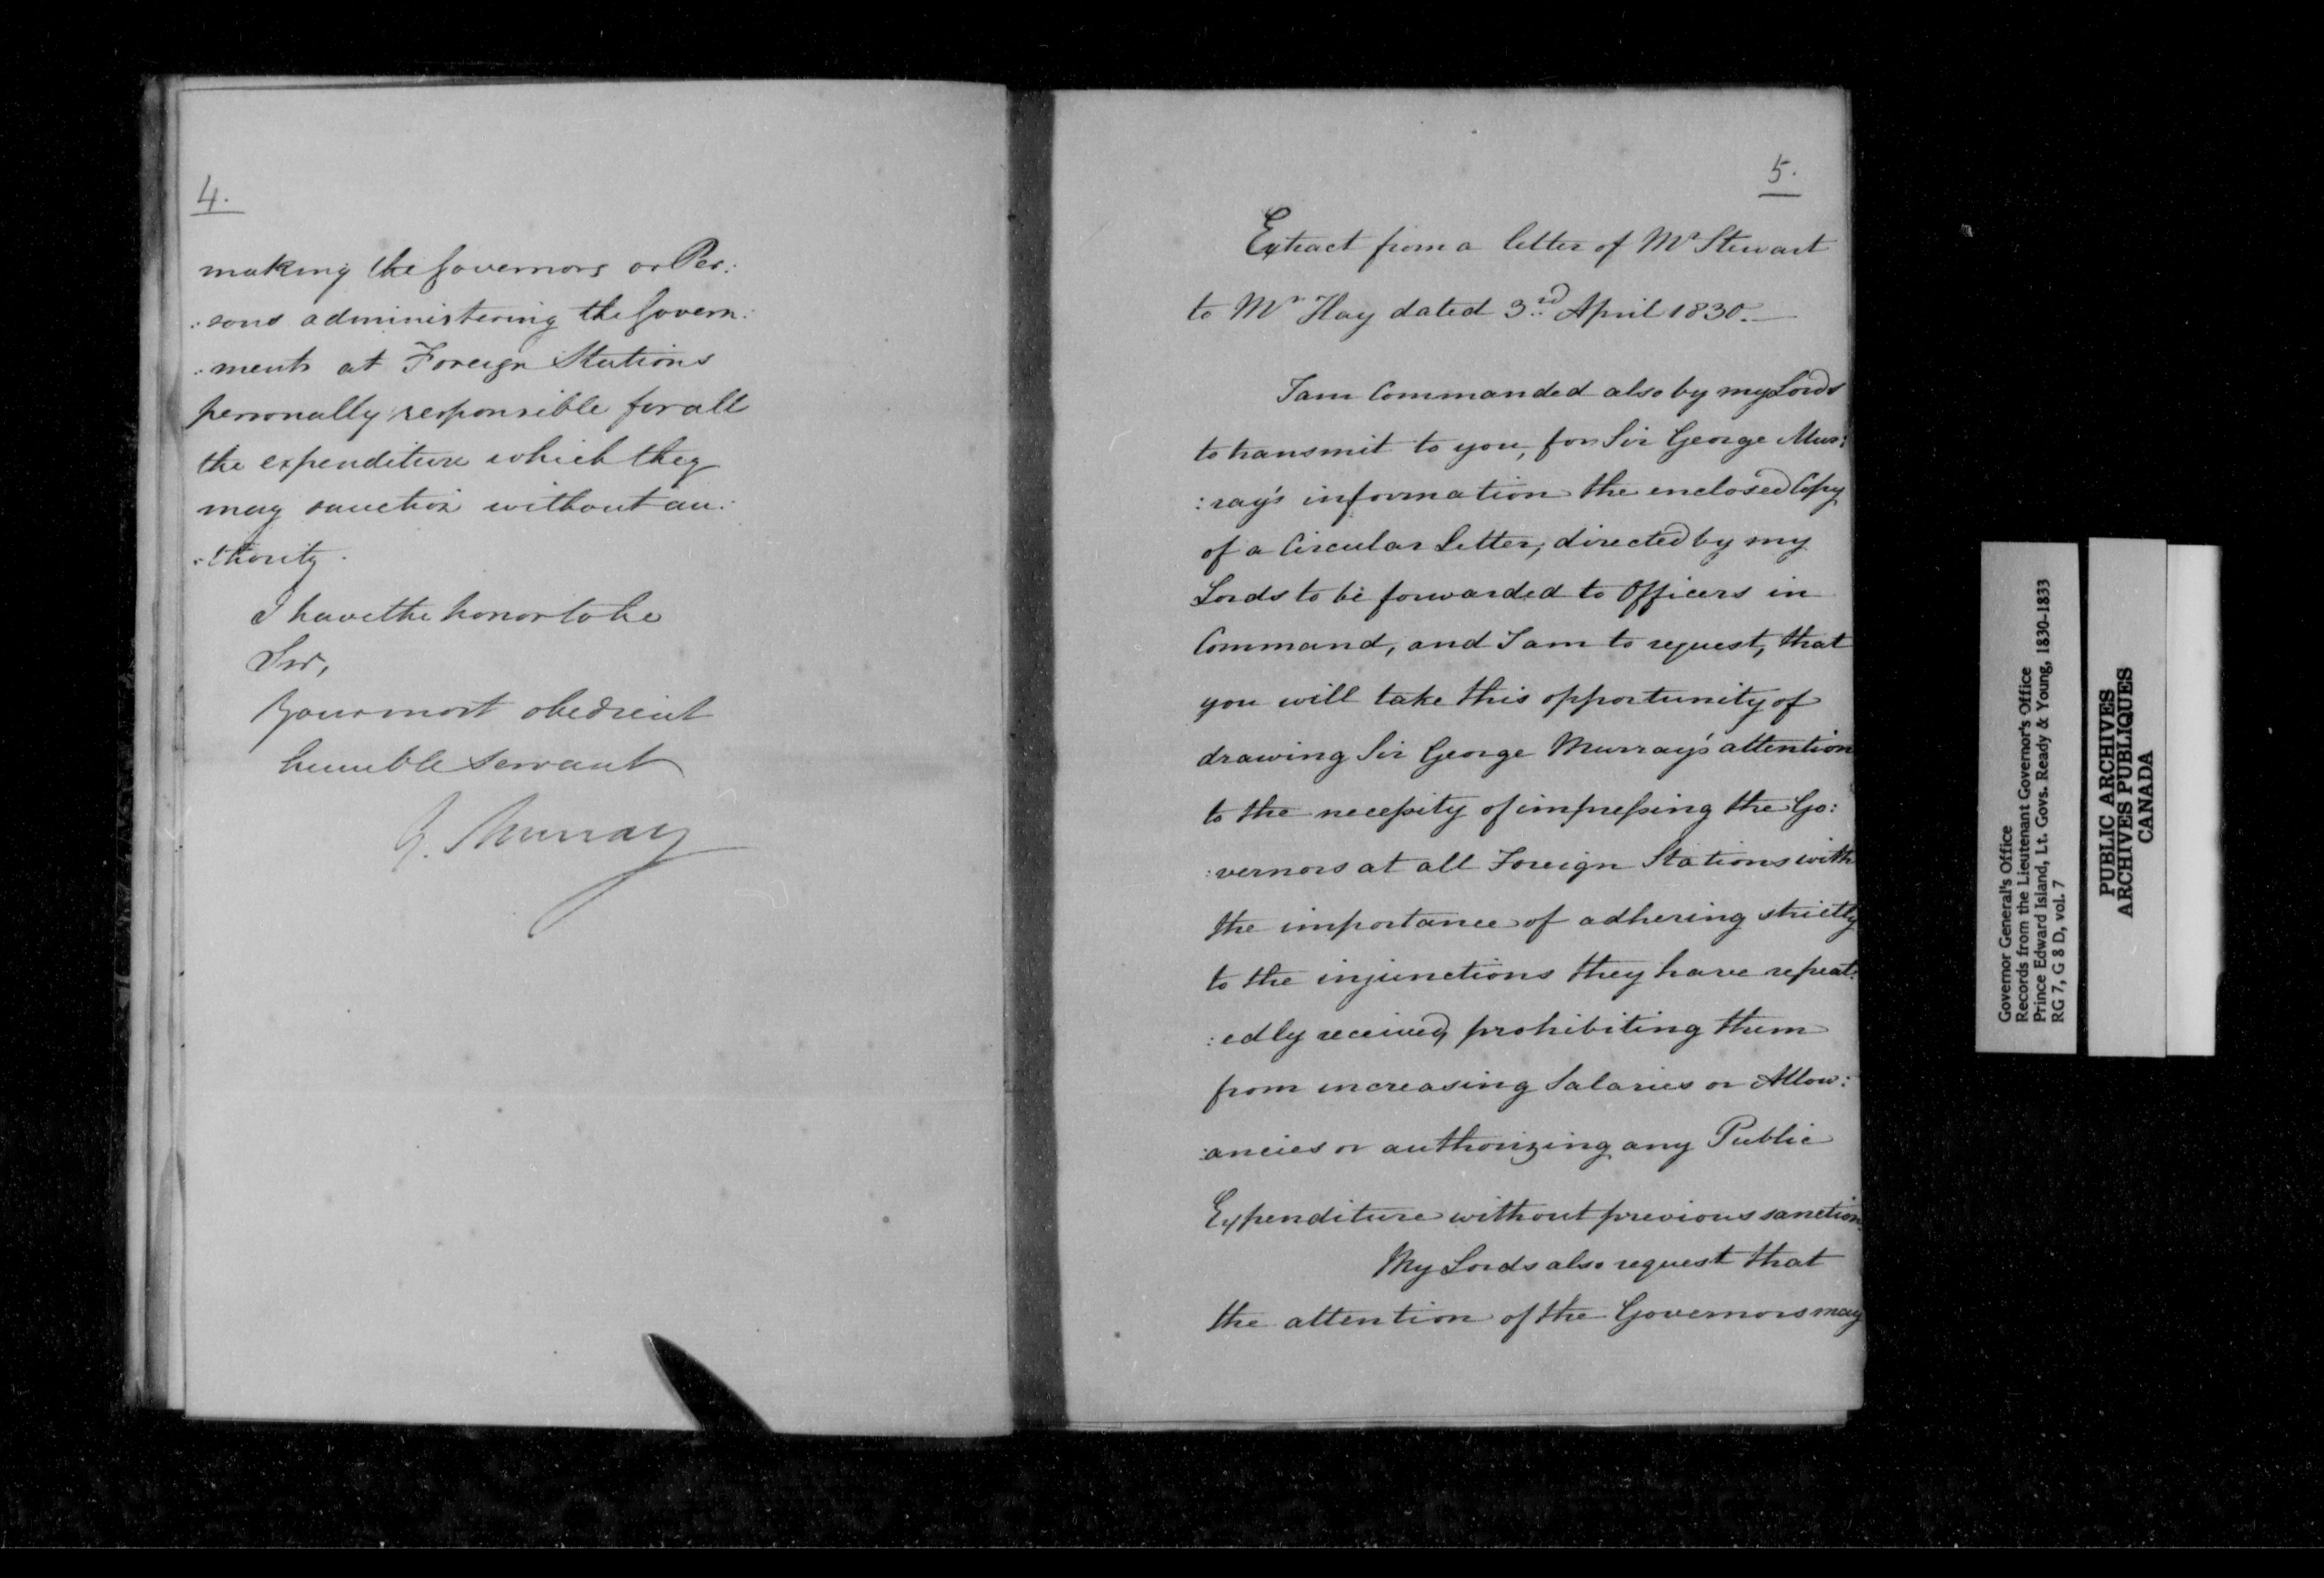 4.
making the Governors or Per:
:sons administering the Govern:
:ment at Foreign Stations
personally responsible for all
the expenditure which they
may sanction without au:
:thority.
I have the honor to be
Sir,
Your most obedient
humble servant
G. Murray
5.
Extract from a letter of Mr Stewart
to Mr Hay dated 3rd April 1830.
I am Commanded also by my Lords
to transmit to you, for Sir George Mur:
:ray's information the enclosed Copy
of a Circular Letter, directed by my
Lords to be forwarded to Officers in
Command, and I am to request, that
you will take this opportunity of
drawing Sir George Murray's attention
to the necessity of impressing the Go:
:vernors at all Foreign Stations with
the importance of adhering strictly
to the injunctions they have repeat:
:edly received, prohibiting them
from increasing Salaries or Allow:
:ancies or authorizing any Public
Expenditure without previous sanction.
My Lords also request that
the attention of the Governors may
Governor General's Office
Records from the Lieutenant Governor's Office
Prince Edward Island, Lt. Govs. Ready & Young, 1830-1833
RG 7, G 8 D, vol. 7
PUBLIC ARCHIVES
ARCHIVES PUBLIQUES
CANADA